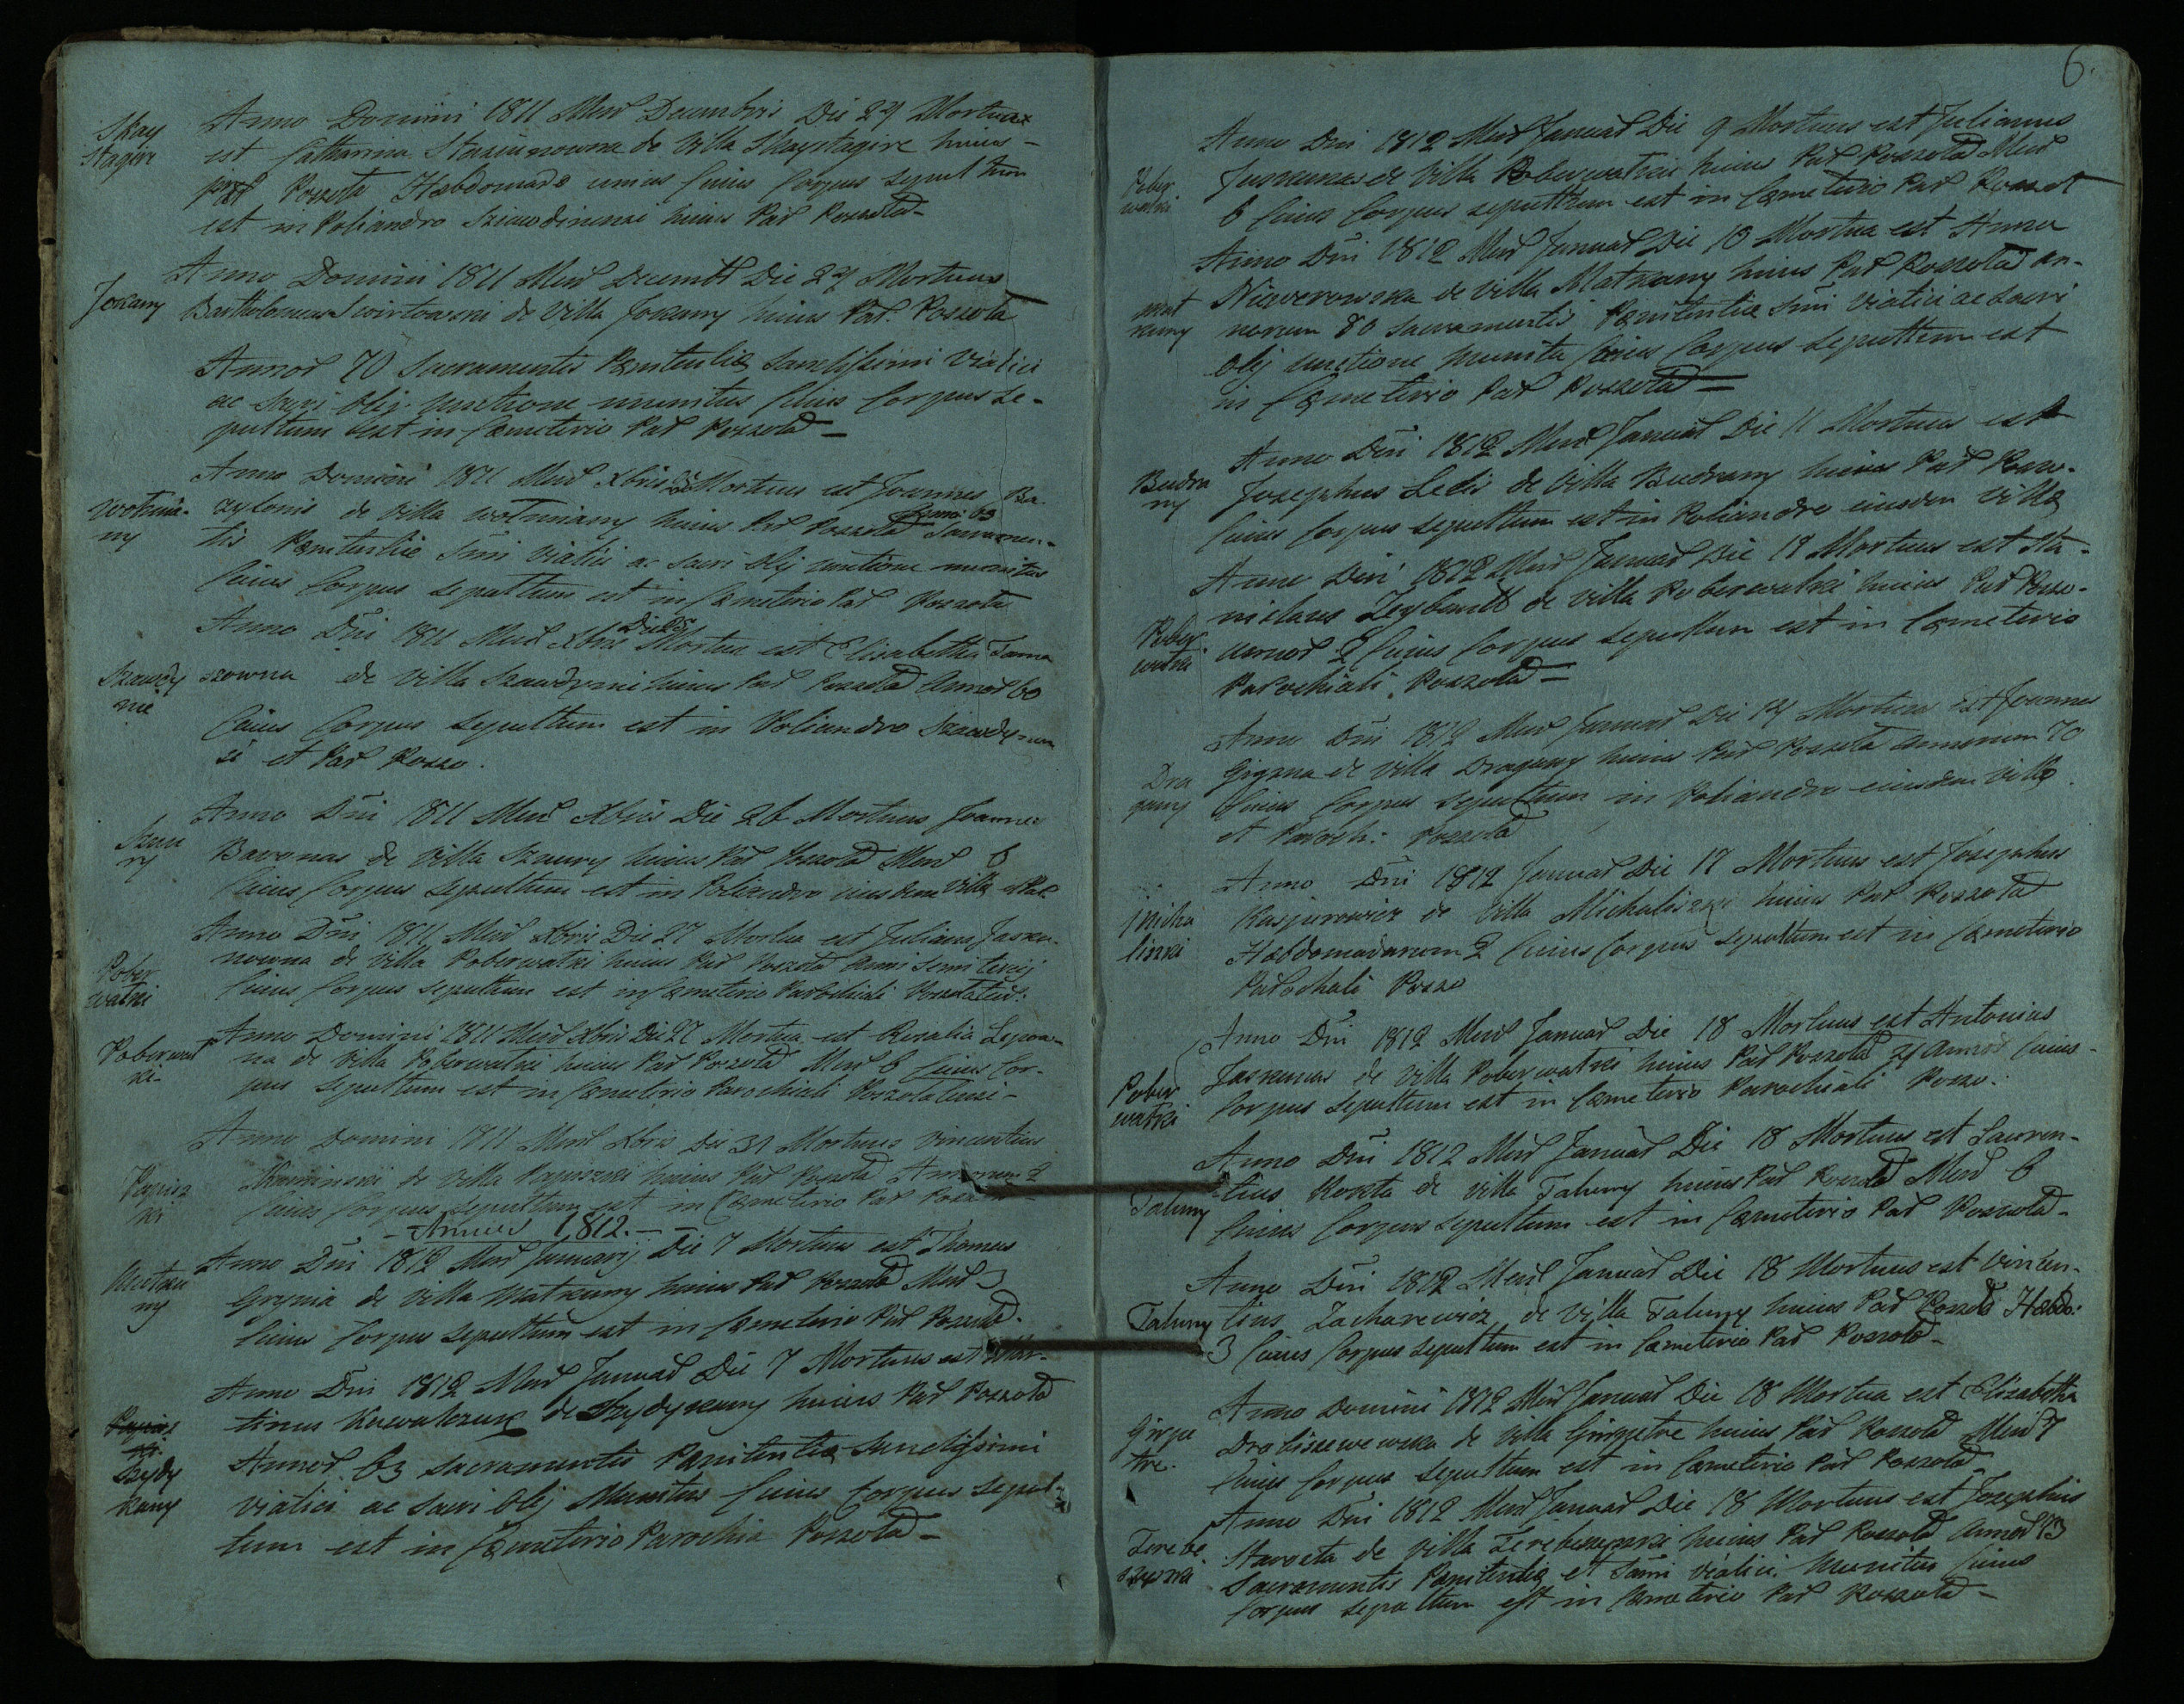 Skay
stagire
Anno Domini 1811 Mens Decembris Die 24 Mortua
est Catharina Stasiunowna de Villa Skaystagire huius
Par Poszola Hebdomade unius Cuius Corpus sepultum
est in Poliandro Sziawdinensi huius Par Poszolat
Jokany
Anno Domini 1811 Mens Decembr Die 24 Mortuus
Bartholomeus Swirtowski de Villa Jokany huius Par. Poszola
Annor 70 Sacramentis Pænitentiæ Sanctissimi Viatici
ac Sacri Olij Unctione munitus Cuius Corpus se-
pultum est in Cæmeterio Par Poszolat
Wotunia-
ny
Anno Domini 1811 Mens Xbris Mortuus est Joannes Ba-
cylonis de Villa Wotuniany huius Par Poszolat Annor 63 Sacramen-
tis Pænitentiæ Smi Viatici ac Sacri Olij Unctione munitus
Cuius Corpus sepultum est in Cæmeterio Par Poszola
Szawdy
nie
Anno Dni 1811 Mens Xbris Die 25 Mortua est Elisabetha Toma
szowna de Villa Szawdynie huius Par Poszolat Annor 60
Cuius Corpus sepultum est in Poliandro Szawdynen
si et Par Poszo.
Szau
ry
Anno Dni 1811 Mens Xbris Die 26 Mortuus Joannes
Baronas de Villa Szaury huius Par Poszolat Mens 6
Cuius Corpus sepultum est in Poliandro eiusdem Villæ et Par
Pober
watki
Anno Dni 1811 Mens Xbris Die 27 Mortua est Juliana Jasku-
nowna de Villa Poberwatki huius Par Poszolat Anni semi tercij
Cuius Corpus sepultum est in Cæmeterio Parochiali Poszolaten:
Poberwat
ki
Anno Domini 1811 Mens Xbris Die 27 Mortua est Rozalia
na de Villa Poberwatki huius Par Poszolat Mens 6 Cuius Cor-
pus sepultum est in Cæmeterio Parochiali Poszolatensi
Papisz
ki
Anno Domini 1811 Mens Xbris Die 31 Mortuus Vincentius
Kaminski de Villa Papiszki huius Par Poszolat Annorum 2
Cuius Corpus sepultum est in Cæmeterio Par
- Annus 1812. -
Matku
ny
Anno Dni 1812 Mens Januarij Die 7 Mortuus est Thomas
Grynia de Villa Matkuny huius Par Poszolat Mens 3
Cuius Corpus sepultum est in Cæmeterio Par Poszolat.
Papisz
ki
Szydy
kany
Anno Dni 1812 Mens Januar Die 7 Mortuus est Mar-
tinus Kowalczuk de Szydykany huius Par Poszolat
Annor 63 Sacramentis Pænitentiæ Sanctissimi
Viatici ac Sacri Olij Munitus Cuius Corpus sepul-
tum est in Cæmeterio Parochia Poszolat
6.
Pober
watki
Anno Dni 1812 Mens Januar Die 9 Mortuus est Julianus
Jaskunas de Villa Poberwatki huius Par Poszolat Mens
6 Cuius Corpus sepultum est in Cæmeterio Par Poszolat
Mat
kuny
Anno Dni 1812 Mens Januar Die 10 Mortua est Anna
Niewerowska de Villa Matkuny huius Par Poszolat An-
norum 80 Sacramentis Pænitentiæ Smi Viatici ac Sacri
Olij Unctione Munita Cuius Corpus sepultum est
in Cæmeterio Par Poszolat
Budra
ny
Anno Dni 1812 Mens Januar Die 11 Mortuus est
Josephus Ledis de Villa Budrany huius Par Poszo-
Cuius Corpus sepultum est in Poliandro eiusdem Villæ
Pober
watki
Anno Dni 1812 Mens Januar Die 12 Mortuus est Sta-
nislaus Zeybautt de Villa Poberwatki huius Par Poszo-
Annor 2 Cuius Corpus sepultum est in Cæmeterio
Parochiali Poszolat
Dra
gany
Anno Dni 1812 Mens Januar Die 14 Mortuus est Joannes
Gigzna de Villa Dragany huius Par Poszola Annorum 70
Cuius Corpus sepultum in Poliandro eiusdem Villæ
et Paroch: Poszola
Micha
liszki
Anno Dni 1812 Januar Die 17 Mortuus est Josephus
Kasperowicz de Villa Michaliszki huius Par Poszolat
Hebdomadarum 2 Cuius Corpus sepultum est in Cæmeterio
Parochiali Poszo
Pober
watki
Anno Dni 1812 Mens Januar Die 18 Mortuus est Antonius
Jaskunas de Villa Poberwatki huius Par Poszolat 4 Annor Cuius
Corpus sepultum est in Cæmeterio Parochiali Poszo.
Taluny
Anno Dni 1812 Mens Januar Die 18 Mortuus est Lauren-
tius Rozeta de Villa Taluny huius Par Poszolat Mens 6
Cuius Corpus sepultum est in Cæmeterio Par Poszolat
Taluny
Anno Dni 1812 Mens Januar Die 18 Mortuus est Vincen-
tius Zacharewicz de Villa Taluny huius Par Poszola Hebdo:
3 Cuius Corpus sepultum est in Cæmeterio Par Poszolat
Girge
tre.
Anno Domini 1812 Mens Januar Die 18 Mortua est Elisabetha
Drobiszewska de Villa Girgetre huius Par Poszolat Mens 7
Cuius Corpus sepultum est in Cæmeterio Par Poszolat
Terebe
szyszki
Anno Dni 1812 Mens Januar Die 18 Mortuus est Josephus
Starosta de Villa huius Par Poszolat Annor 73
Sacramentis Pænitentiæ et Smi Viatici Munitus Cuius
Corpus sepultum est in Cæmeterio Par Poszolat